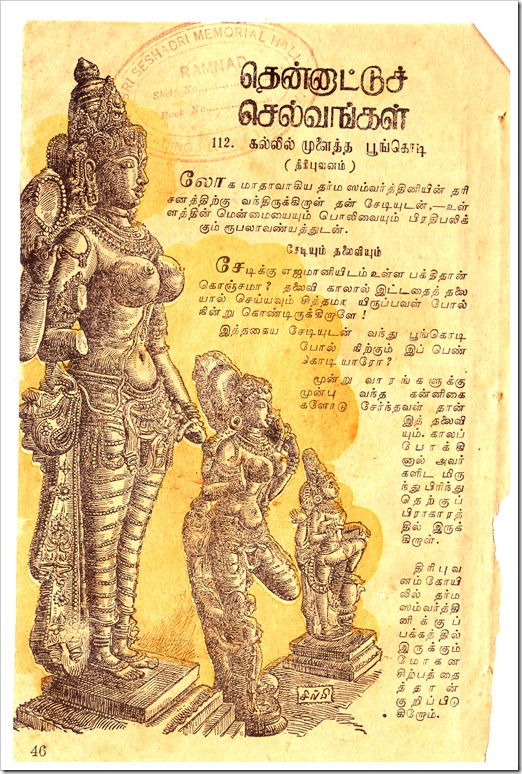 SRI SESHADRI MEMORIAL HALL
RAMNAD
Book No.
தென்னாட்டுச்
செல்வங்கள்
112. கல்லில் முளைத்த பூங்கொடி
(திரிபுவனம்)
லோக மாதாவாகிய தர்ம ஸம்வர்த்தினியின் தரி
சனத்திற்கு வந்திருக்கிறாள் தன் சேடியுடன்,—உள்
ளத்தின் மென்மையையும் பொலிவையும் பிரதிபலிக்
கும் ரூபலாவண்யத்துடன்.
சேடியும் தலைவியும்
சேடிக்கு எஜமானியிடம் உள்ள பக்திதான்
கொஞ்சமா? தலைவி காலால் இட்டதைத் தலை
யால் செய்யவும் சித்தமா யிருப்பவள் போல்
நின்று கொண்டிருக்கிறாளே!
இத்தகைய சேடியுடன் வந்து பூங்கொடி
போல் நிற்கும் இப் பெண்
கொடி யாரோ?
மூன்று வாரங்களுக்கு
முன்பு வந்த கன்னிகை
களோடு சேர்ந்தவள் தான்
இத் தலைவி
யும். காலப்
போக்கி
னால் அவர்
களிட மிரு
ந்து பிரிந்து
தெற்குப்
பிராகாரத்
தில் இருக்
கிறாள்.
திரிபுவ
னம்கோயி
லில் தர்ம
ஸம்வர்த்தி
னிக்குப்
பக்கத்தில்
இருக்கும்
மோகன
சிற்பத்தை
த்தான்
குறிப்பிடு
கிறோம்.
சில்பி
46